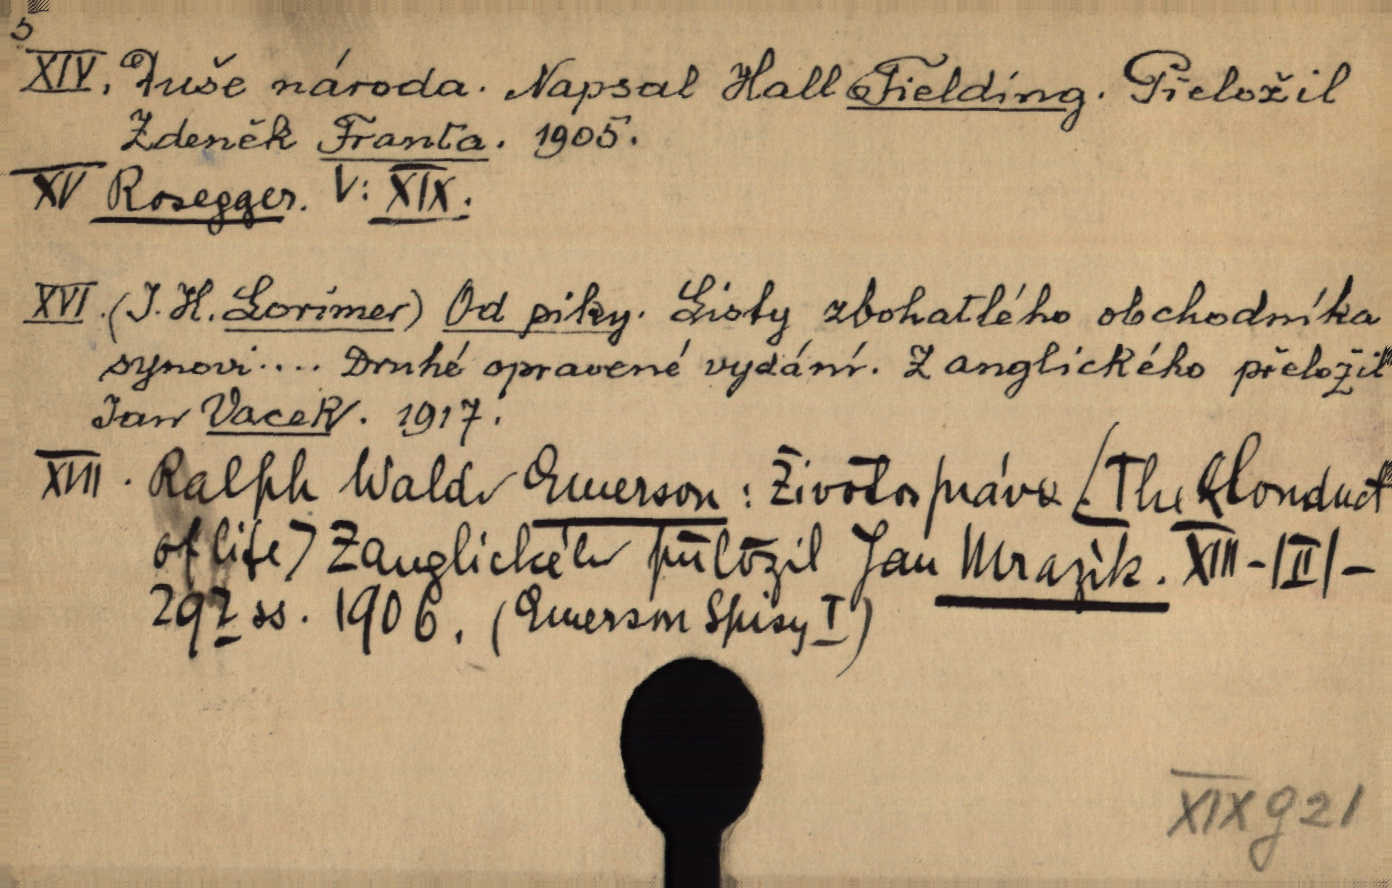 5
XIV. Duše národa. Napsal Hall Fielding. Přeložil
Zdeněk Franta. 1905.
XV Rosegger. V: XIX.
XVI. (J. H. Lorimer) Od piky. Listy zbohatlého obchodníka
synovi.... Druhé opravené vydání. Z anglického přeložil
Jan Vacek. 1917.
XVII. Ralph Waldo Emerson: Životospráva (The Conduct
of life) Z anglického přeložil Jan Mrazik. XIII-|II|-
292 ss. 1906. (Emerson Spisy I)
XIX g 21